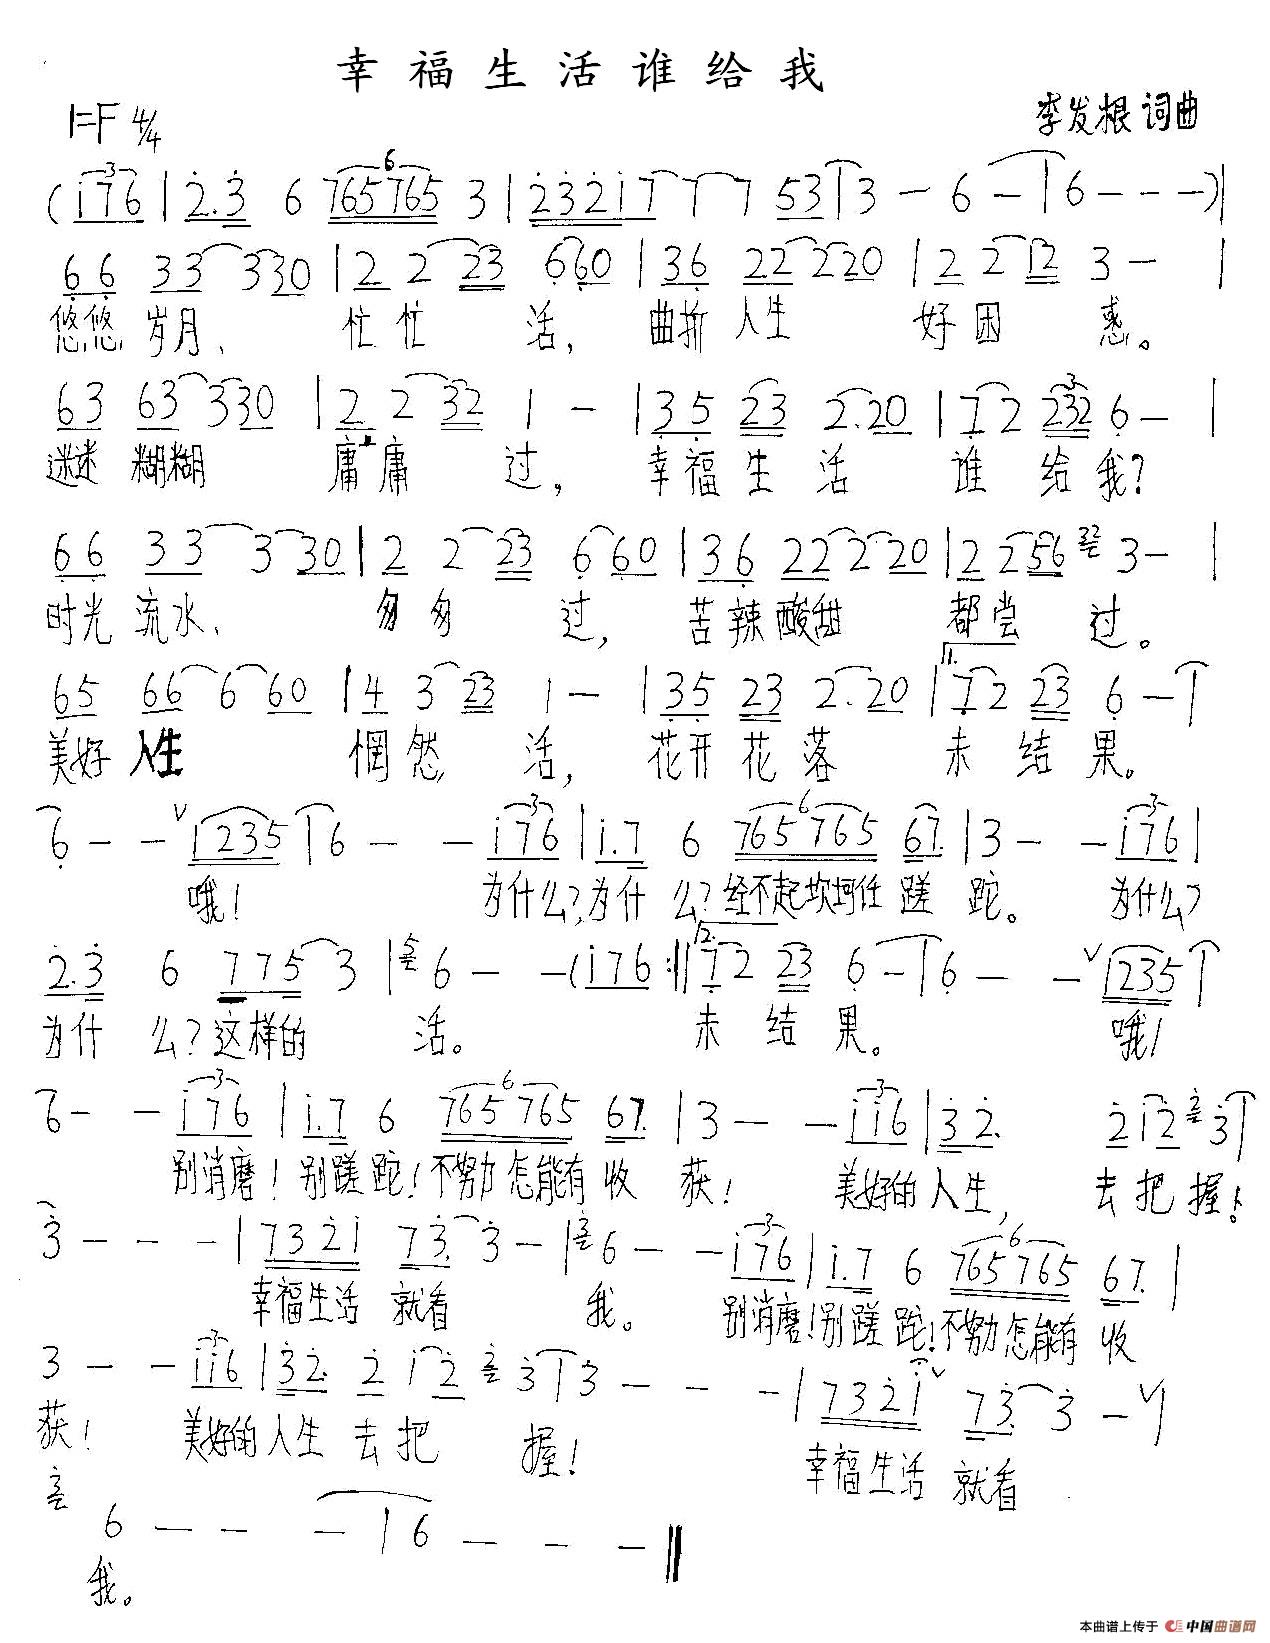 幸福生活谁给我
1=F 4/4
李发根 词曲
(i76|2.3 6 765765 3|2321777 53|3 - 6 -|6 - - -)|
66 33 3330|2 2 23 660|36 22 2220|2 2 12 3 -|
悠悠岁月、忙忙活,曲折人生好困惑。
63 63 3330|2 2 32 1 -|35 23 2.20|7 2 232 6 -|
迷迷糊糊庸庸过,幸福生活谁给我?
66 33 3 30|2 2 23 6 60|36 22 2 20|2 2 56 32 3 -|
时光流水、匆匆过,苦辣酸甜都尝过。
65 66 6 60|4 3 23 1 -|35 23 2.20|1. 7 2 23 6 -|
美好人生惘然活,花开花落未结果。
6 - - 1235|6 - - i76|i.7 6 765765 67.|3 - - i76|
哦!为什么?为什么?经不起坎坷任蹉跎。为什么?
2.3 6 775 3|5 6 - - (i76:||2. 7 2 23 6 -|6 - - 1235|
为什么?这样的活。未结果。哦!
6 - - i76|i.7 6 765765 67.|3 - - ii6|3 2. 2 i2 2 3|
别消磨!别蹉跎!不努力怎能有收获!美好的人生,去把握!
3 - - -|732i 73. 3 -|3 6 - - i76|i.7 6 765765 67.|
幸福生活就看我。别消磨!别蹉跎!不努力怎能有收
3 - - ii6|32. 2 i2 2 3|3 - - -|732i 73. 3 -|
获!美好的人生去把握!幸福生活就看
3 6 - - -|6 - - -‖
我。
本曲谱上传于 中国曲谱网